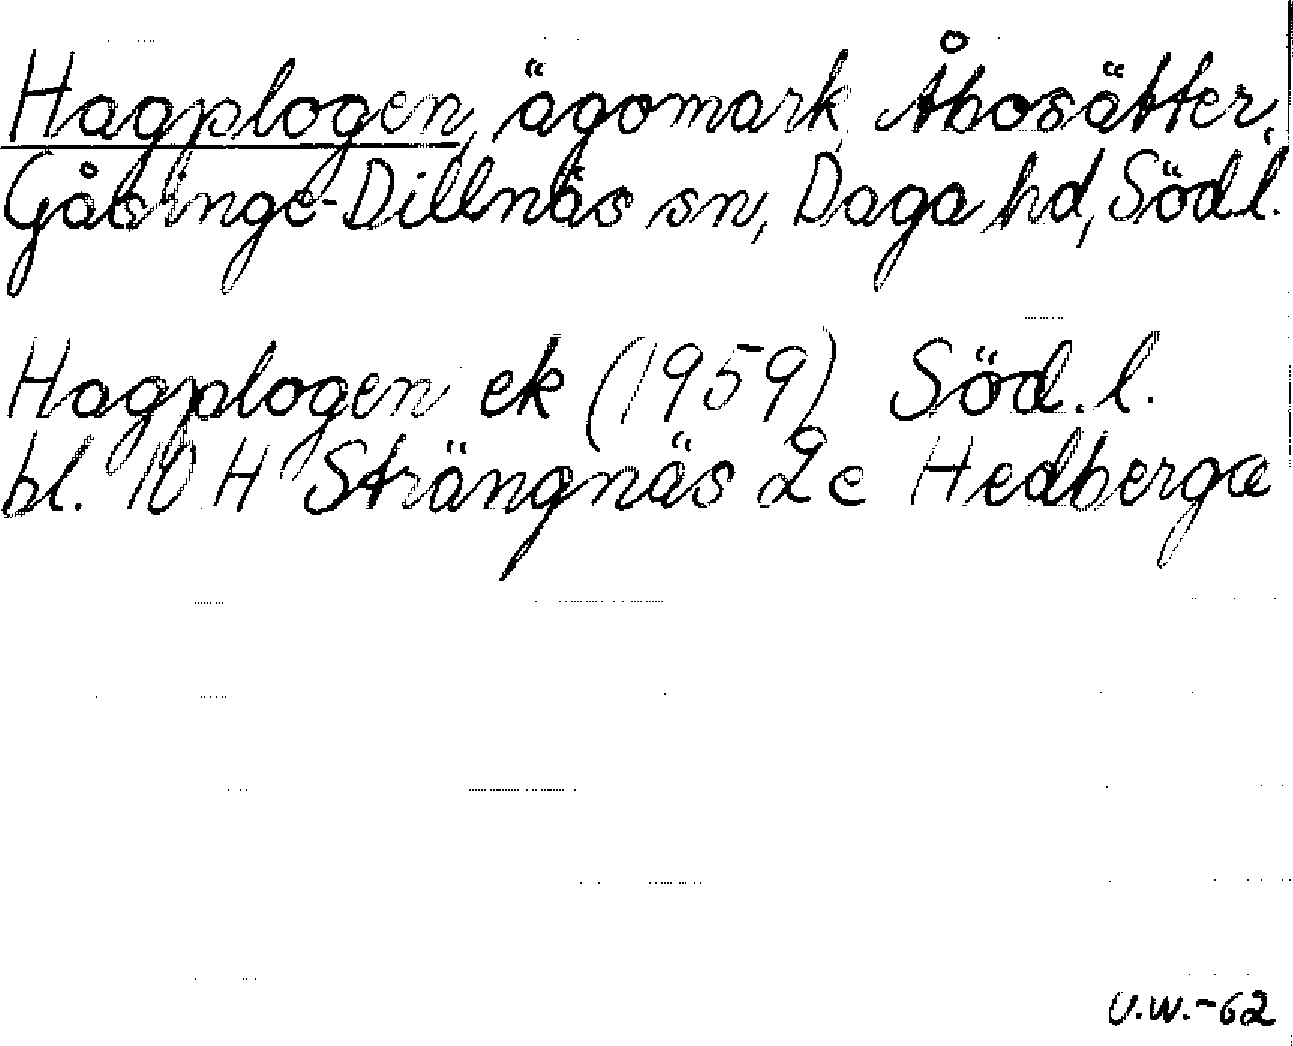 Hagplogen, ägomark, Åbosätter,
Gåsinge-Dillnäs sn, Daga hd, Södl.
Hagplogen ek (1959) Söd.l.
bl. 10 H Strängnäs 2c Hedberga
U.W.-62